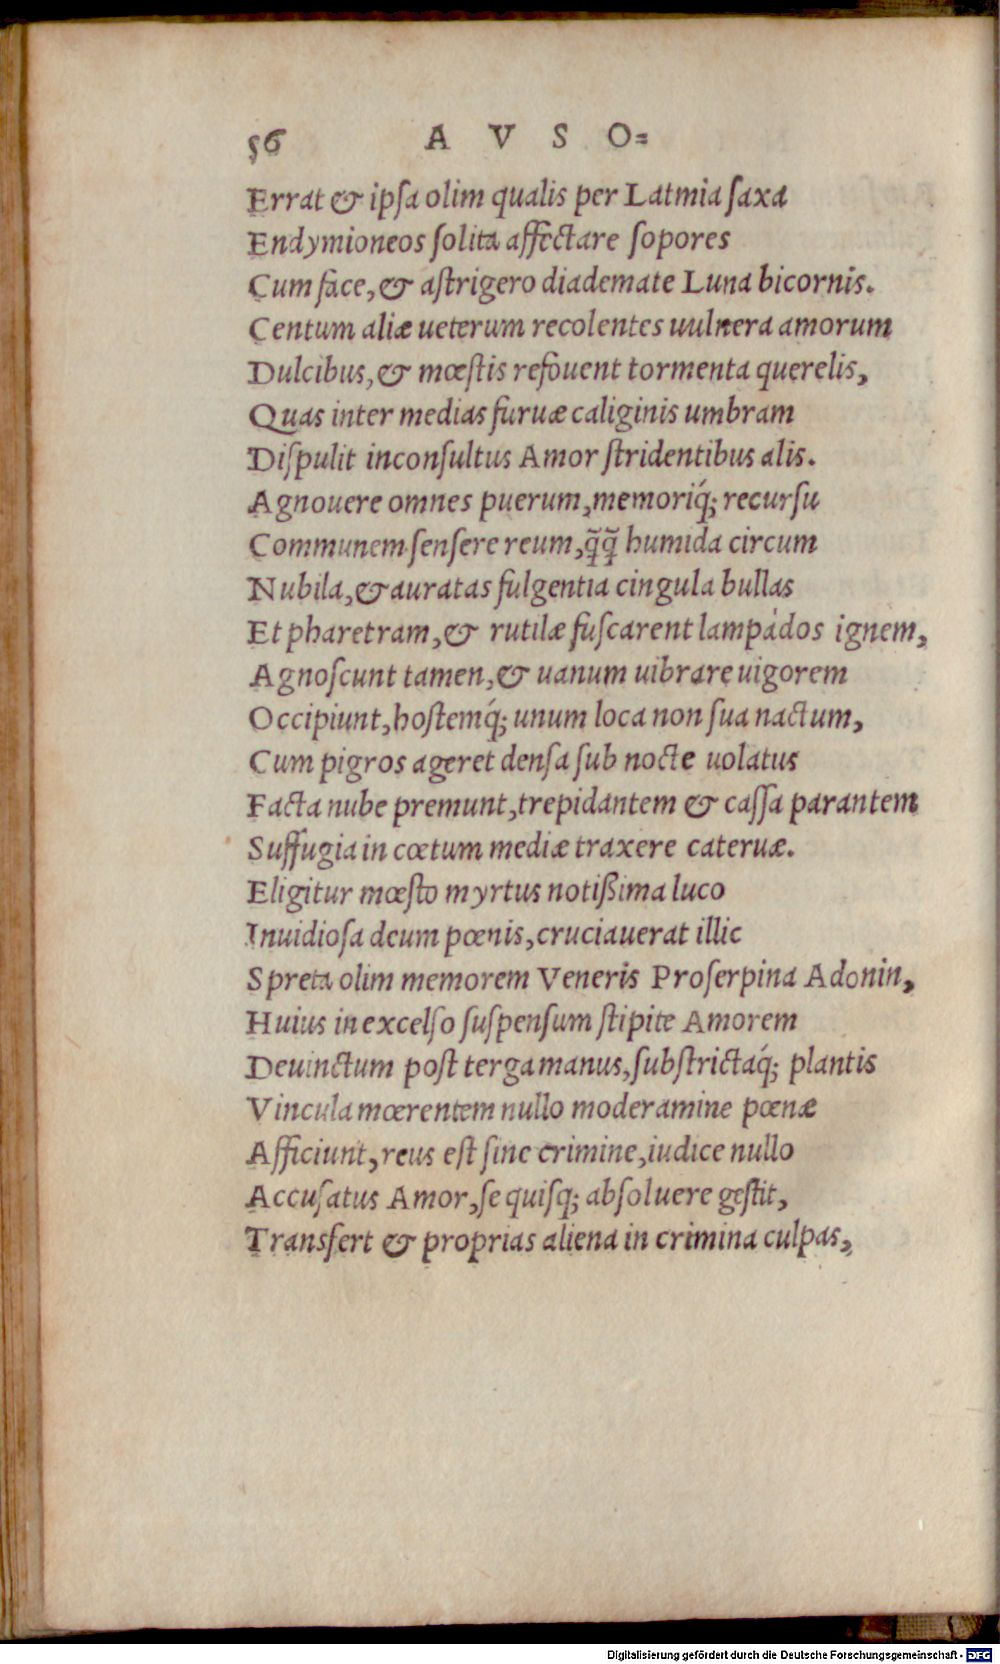 56 A V S O=
Errat & ipſa olim qualis per Latmia ſaxa
Endymioneos ſolita affectare ſopores
Cum face, & aſtrigero diademate Luna bicornis.
Centum aliæ ueterum recolentes uulnera amorum
Dulcibus, & mœſtis refouent tormenta querelis,
Quas inter medias furuæ caliginis umbram
Diſpulit inconſultus Amor ſtridentibus alis.
Agnouere omnes puerum, memoriq́; recurſu
Communem ſenſere reum, q̃q̃ humida circum
Nubila, & auratas fulgentia cingula bullas
Et pharetram, & rutilæ fuſcarent lampádos ignem,
Agnoſcunt tamen, & uanum uibrare uigorem
Occipiunt, hoſtemq́; unum loca non ſua nactum,
Cum pigros ageret denſa ſub nocte uolatus
Facta nube premunt, trepidantem & caſſa parantem
Suffugia in cœtum mediæ traxere cateruæ.
Eligitur mœſto myrtus notißima luco
Inuidioſa deum pœnis, cruciauerat illic
Spreta olim memorem Veneris Proſerpina Adonin,
Huius in excelſo ſuſpenſum ſtipite Amorem
Deuinctum poſt terga manus, ſubſtrictaq́; plantis
Vincula mœrentem nullo moderamine pœnæ
Afficiunt, reus eſt ſine crimine, iudice nullo
Accuſatus Amor, ſe quiſq; abſoluere geſtit,
Transfert & proprias aliena in crimina culpas,
Digitalisierung gefördert durch die Deutsche Forschungsgemeinschaft - DFG